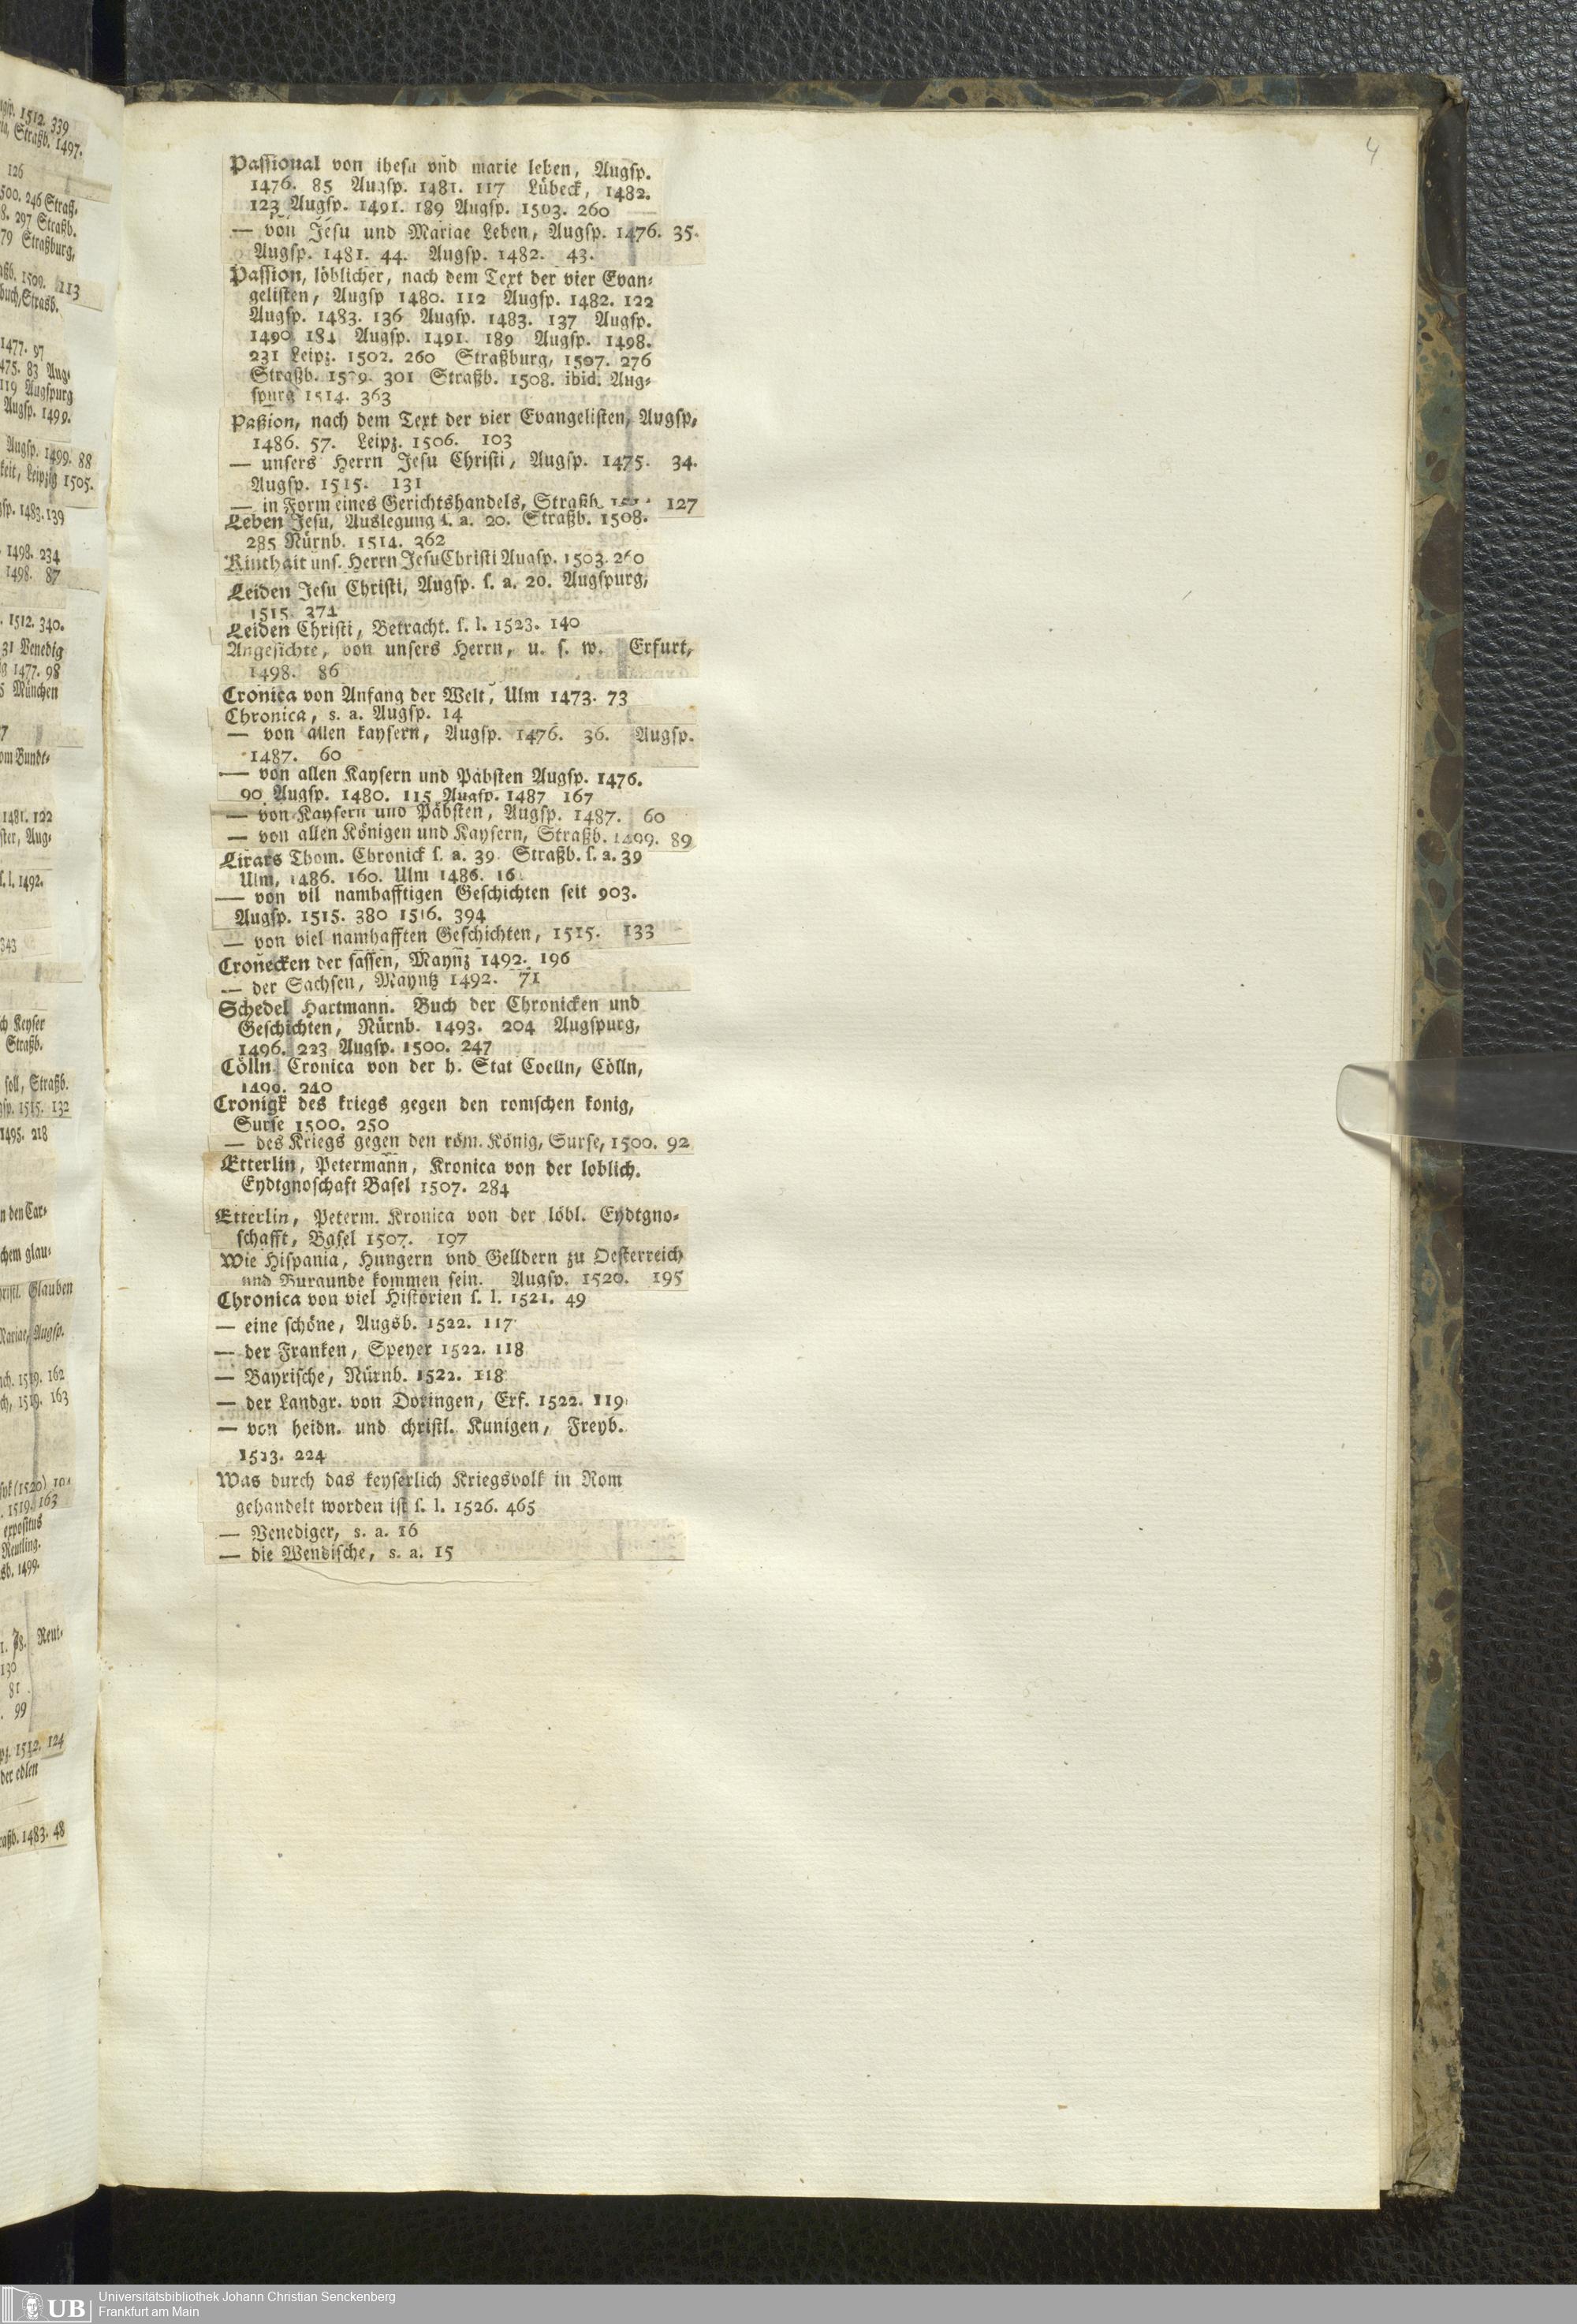 4
Passional von ihesu vnd marie leben, Augsp.
1476. 85 Augsp. 1481. 117 Lübeck, 1482.
123 Augsp. 1491. 189 Augsp. 1503. 260
— von Jesu und Mariae Leben, Augsp. 1476. 35.
Augsp. 1481. 44. Augsp. 1482. 43.
Passion, löblicher, nach dem Text der vier Evan-
gelisten, Augsp 1480. 112 Augsp. 1482. 122
Augsp. 1483. 136 Augsp. 1483. 137 Augsp.
1490 184 Augsp. 1491. 189 Augsp. 1498.
231 Leipz. 1502. 260 Straßburg, 1507. 276
Straßb. 301 Straßb. 1508. ibid. Aug-
spurg 1514. 363
Paßion, nach dem Text der vier Evangelisten, Augsp,
1486. 57. Leipz. 1506. 103
— unsers Herrn Jesu Christi, Augsp. 1475. 34.
Augsp. 1515. 131
— in Form eines Gerichtshandels, Straßb. 127
Leben Jesu, Auslegung s. a. 20. Straßb. 1508.
285 Nürnb. 1514. 362
Kinthait uns. Herrn Jesu Christi Augsp. 1503. 260
Leiden Jesu Christi, Augsp. s. a. 20. Augspurg,
1515. 374
Leiden Christi, Betracht. s. l. 1523. 140
Angesichte, von unsers Herrn, u. s. w. Erfurt,
1498. 86
Cronica von Anfang der Welt, Ulm 1473. 73
Chronica, s. a. Augsp. 14
— von allen kaysern, Augsp. 1476. 36. Augsp.
1487. 60
— von allen Kaysern und Päbsten Augsp. 1476.
90 Augsp. 1480. 115 Augsp. 1487 167
— von Kaysern und Päbsten, Augsp. 1487. 60
— von allen Königen und Kaysern, Straßb. 1499. 89
Lirars Thom. Chronick s. a. 39 Straßb. s. a. 39
Ulm, 1486. 160. Ulm 1486. 16
— von vil namhafftigen Geschichten seit 903.
Augsp. 1515. 380 1516. 394
— von viel namhafften Geschichten, 1515. 133
Cronecken der sassen, Maynz 1492. 196
— der Sachsen, Mayntz 1492. 71
Schedel Hartmann. Buch der Chronicken und
Geschichten, Nürnb. 1493. 204 Augspurg,
1496. 223 Augsp. 1500. 247
Cölln. Cronica von der h. Stat Coelln, Cölln,
1499. 240
Cronigk des kriegs gegen den romschen konig,
Surse 1500. 250
— des Kriegs gegen den röm. König, Surse, 1500. 92
Etterlin, Petermann, Kronica von der loblich.
Eydtgnoschaft Basel 1507. 284
Etterlin, Peterm. Kronica von der löbl. Eydtgno-
schafft, Basel 1507. 197
Wie Hispania, Hungern vnd Gelldern zu Oesterreich
und Burgunde kommen sein. Augsp. 1520. 195
Chronica von viel Historien s. l. 1521. 49
— eine schöne, Augsb. 1522. 117
— der Franken, Speyer 1522. 118
— Bayrische, Nürnb. 1522. 118
— der Landgr. von Doringen, Erf. 1522. 119
— von heidn. und christl. Kunigen, Freyb.
1523. 224
Was durch das keyserlich Kriegsvolk in Rom
gehandelt worden ist s. l. 1526. 465
— Venediger, s. a. 16
— die Wendische, s. a. 15
Universitätsbibliothek Johann Christian Senckenberg
Frankfurt am Main
UB